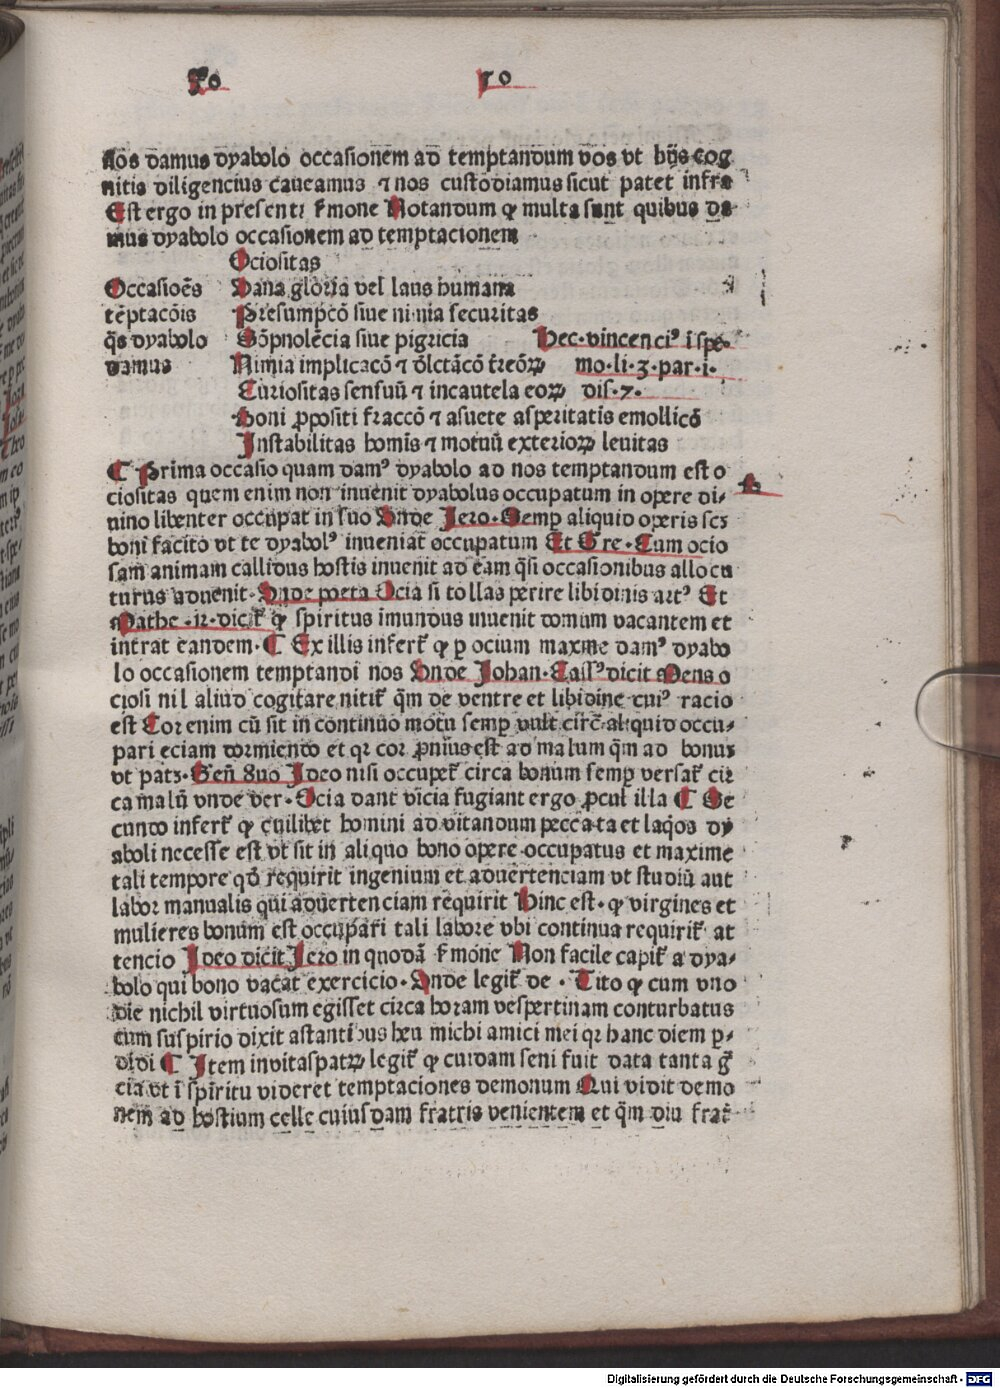 50 50
nos damus dyabolo occasionem ad temptandum vos vt hijs cog
nitis diligencius caueamus ⁊ nos custodiamus sicut patet infra
Est ergo in presenti ẜmone Notandum ꝙ multa sunt quibus da-
mus dyabolo occasionem ad temptacionem
Ociositas
Occasiōes Vana gloria vel laus humana
tēptacōis Presumpcō siue nimia securitas
q̄s dyabolo Sōpnolēcia siue pigricia Hec·vincenciꝰ ī spe-
damus Nimia implicacō ⁊ dl̄ctācō t̄reōꝝ mo·li·3·par·i·
Curiositas sensuū ⁊ incautela eoꝝ dis·7·
Boni ꝓpositi fraccō ⁊ asuete asperitatis emollicō
Instabilitas homīs ⁊ motuū exterioꝝ leuitas
¶ Prima occasio quam damꝰ dyabolo ad nos temptandum est o A
ciositas quem enim non inuenit dyabolus occupatum in opere di-
uino libenter occupat in suo Vnde Jero·Semꝑ aliquid operis
boni facito vt te dyabolꝰ inueniat occupatum Et Gre·Cum ocio
sam animam callidus hostis inuenit ad eam q̄si occasionibus allocu
turus aduenit·Vnde poeta Ocia si tollas perire libidinis artꝰ Et
Mathe·12·dicit̉ ꝙ spiritus imundus inuenit domum vacantem et
intrat eandem·¶ Ex illis infert̉ ꝙ ꝑ ocium maxme damꝰ dyabo
lo occasionem temptandi nos Vnde Johan·Cassꝰ dicit Mens o
ciosi nil aliud cogitare nitit̉ q̄m de ventre et libidine cuiꝰ racio
est Cor enim cū sit in continuo motu semꝑ vult circā aliquid occu-
pari eciam dormiendo et qr cor ꝓnius est ad malum q̄m ad bonus
vt patꝫ·Gen̄ 8uo Ideo nisi occupet̉ circa bonum semꝑ versat̉ cir
ca malū vnde ver·Ocia dant vicia fugiant ergo ꝓcul illa ¶ Se
cundo infert̉ ꝙ cuilibet homini ad vitandum peccata et laq̄os dy
aboli necesse est vt sit in aliquo bono opere occupatus et maxime
tali tempore qd̄ requirit ingenium et aduertenciam vt studiū aut
labor manualis qui aduertenciam requirit Hinc est·ꝙ virgines et
mulieres bonum est occupari tali labore vbi continua requirit̉ at
tencio Ideo dicit Jero in quodā ẜmone Non facile capit̉ a dya-
bolo qui bono vacat exercicio·Vnde legit̉ de·Tito ꝙ cum vno
die nichil virtuosum egisset circa horam vespertinam conturbatus
cum suspirio dixit astantibus heu michi amici mei qr hanc diem ꝑ-
didi ¶ Item in vitaspatꝝ legit̉ ꝙ cuidam seni fuit data tanta gr̄
cia vt ī spiritu videret temptaciones demonum Qui vidit demo
nem ad hostium celle cuiusdam fratris venientem et q̄m diu frat̄
Digitalisierung gefördert durch die Deutsche Forschungsgemeinschaft - DFG